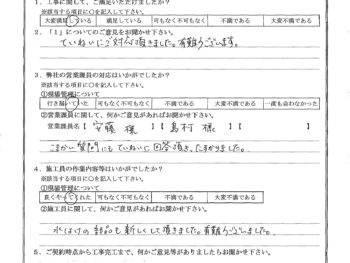 1．工事に関して、ご満足いただけましたか？
※該当する項目に○を記入して下さい。
大変満足している 満足している 可もなく不可もなく 不満である 大変不満である
2．「1」についてのご意見をお聞かせ下さい。
ていねいにご対応頂きました。有難うございます。
3．弊社の営業職員の対応はいかがでしたか？
※該当する項目に○を記入して下さい。
①現場管理について
行き届いていた 可もなく不可もなく 不満である 大変不満である 一度も会わなかった
②営業職員に関して、何かご意見があればお聞かせ下さい。
営業職員名【 安藤 様 】【 島村 様 】【 】
こまかい質問にもていねいに回答頂き、たすかりました。
4．施工員の作業内容等はいかがでしたか？
※該当する項目に○を記入して下さい。
①現場管理について
良くやってくれた 可もなく不可もなく 不満である 大変不満である
②施工員に関して、何かご意見があればお聞かせ下さい。
水はけの部品も新しくして頂きました。有難うございました。
5．ご契約時点から工事完工まで、何かご意見等がありましたらお聞かせ下さい。